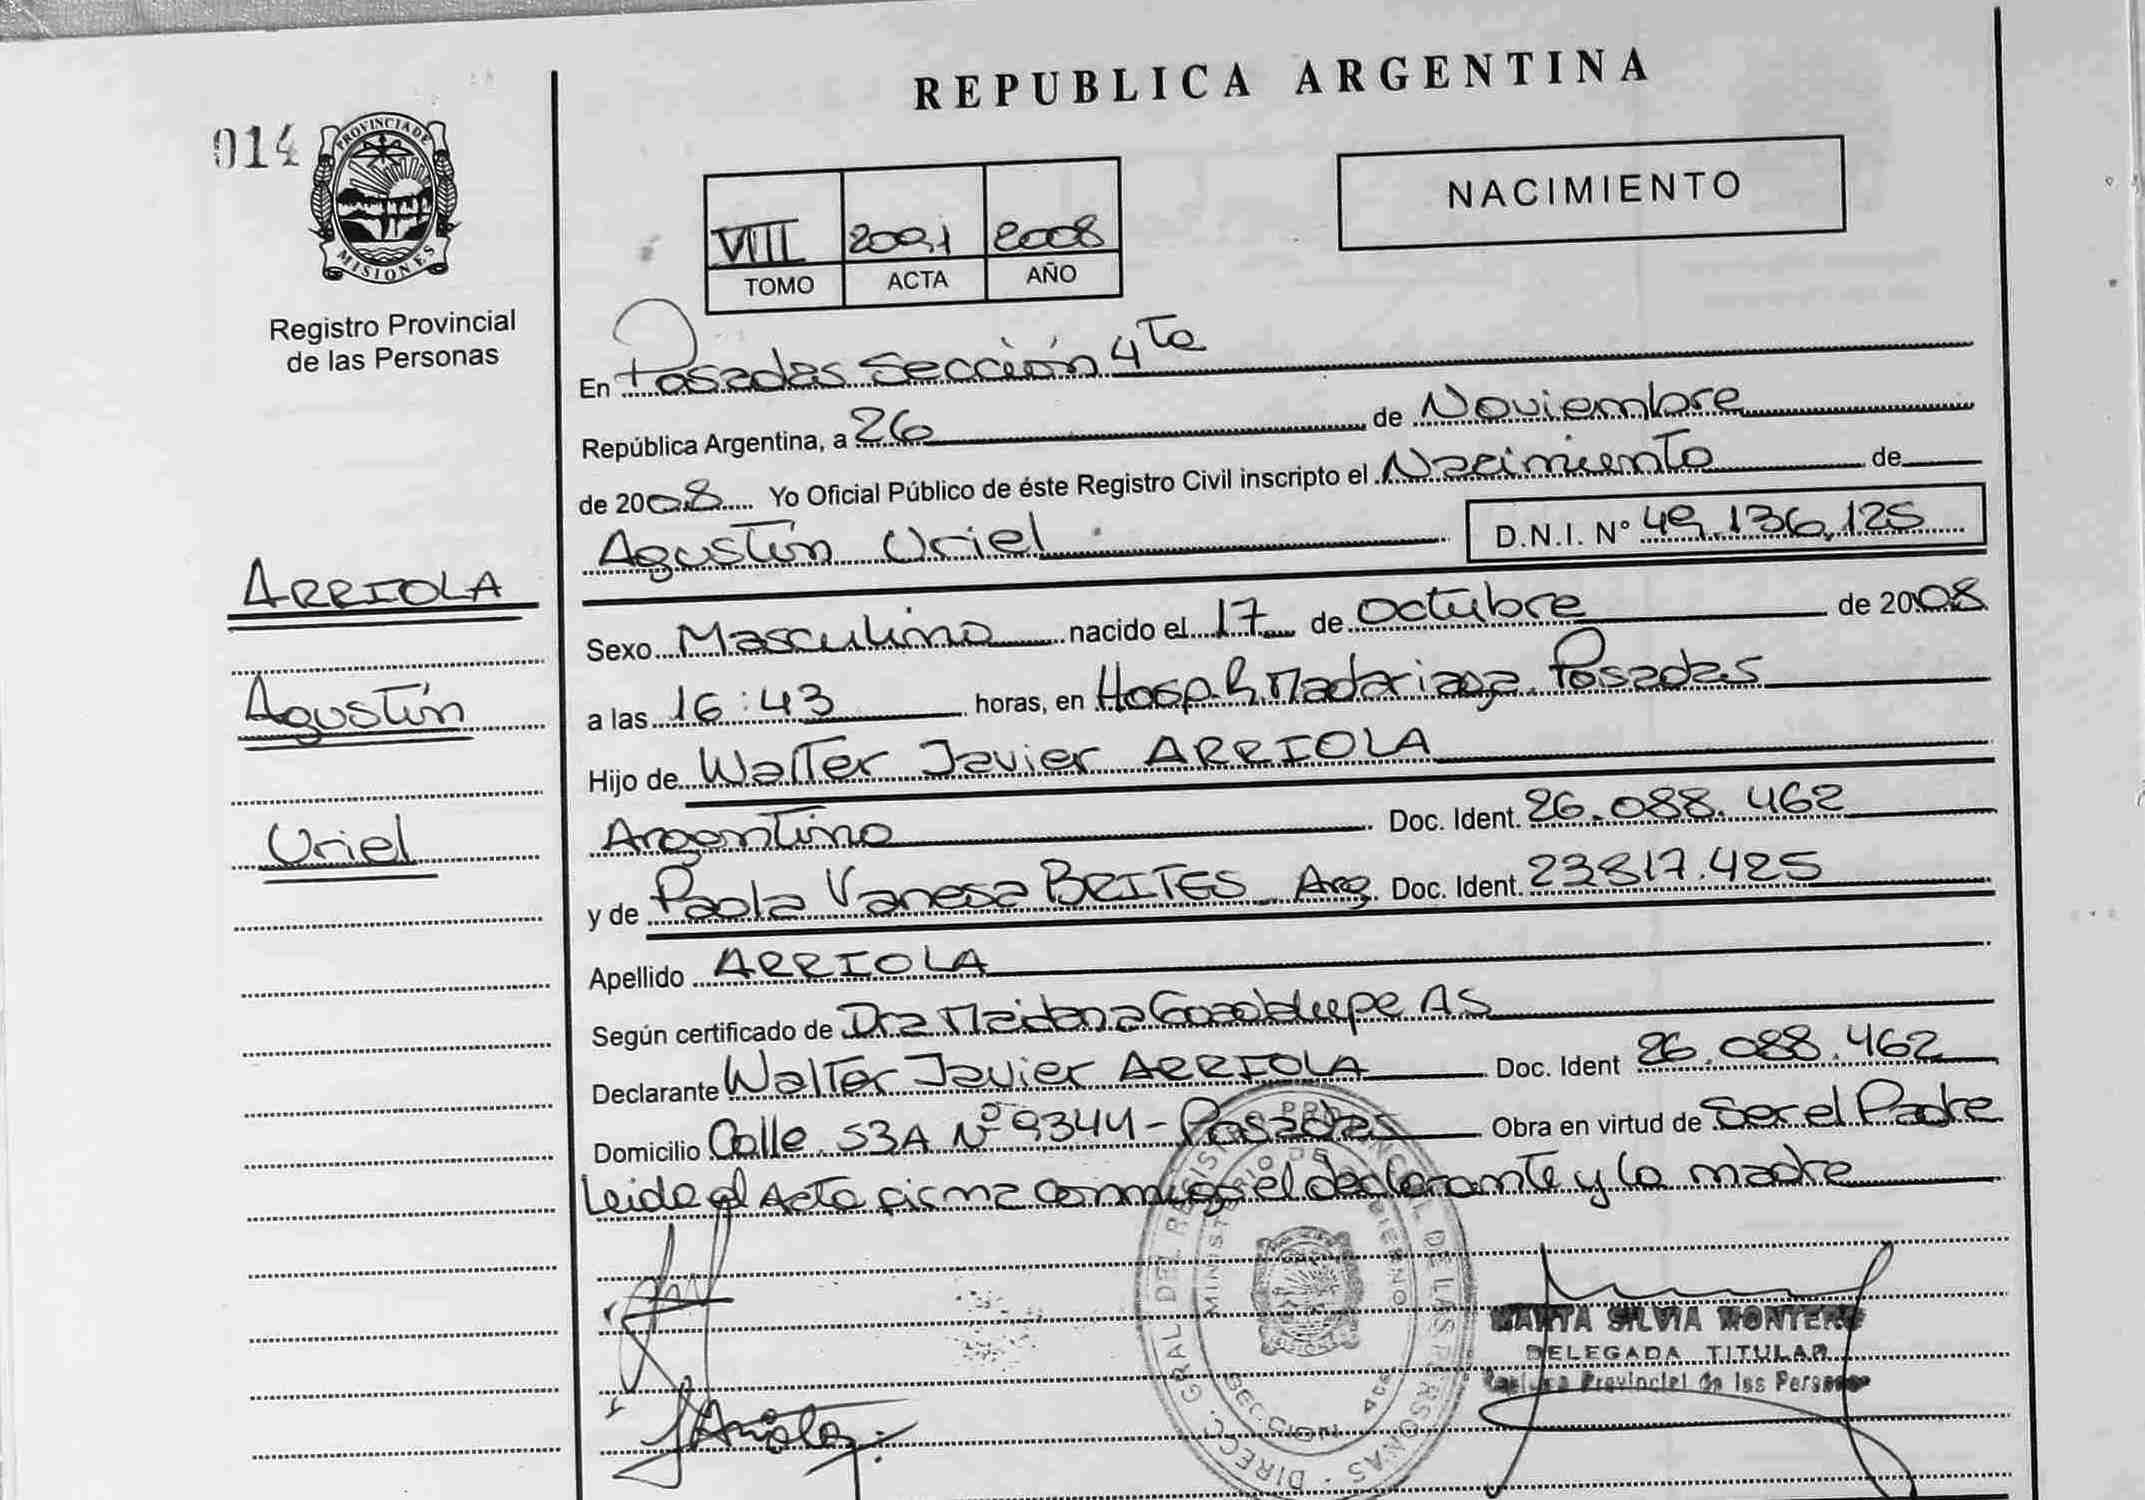 REPUBLICA ARGENTINA
014
PROVINCIA DE
MISIONES
Registro Provincial
de las Personas
NACIMIENTO
VIII 2001 2008
TOMO ACTA AÑO
En Posadas Sección 4ta
República Argentina, a 26 de Noviembre
de 2008 Yo Oficial Público de éste Registro Civil inscripto el Nacimiento de
Agustín Uriel D.N.I. Nº 49.136.125
ARRIOLA
Agustín
Uriel
Sexo Masculino nacido el 17 de octubre de 2008
a las 16:43 horas, en Hosp. R. Madariaga. Posadas
Hijo de Walter Javier ARRIOLA
Argentino Doc. Ident. 26.088.462
y de Paola Vanesa BRITES Arg. Doc. Ident. 23817.425
Apellido ARRIOLA
Según certificado de Dra Maidana Guadalupe AS
Declarante Walter Javier ARRIOLA Doc. Ident 26.088.462
Domicilio Calle 53A Nº 9344 - Posadas Obra en virtud de Ser el Padre
Leida el Acta firma conmigo el declarante y la madre
MARTA SILVIA MONTERO
DELEGADA TITULAR
Provincial de las Personas